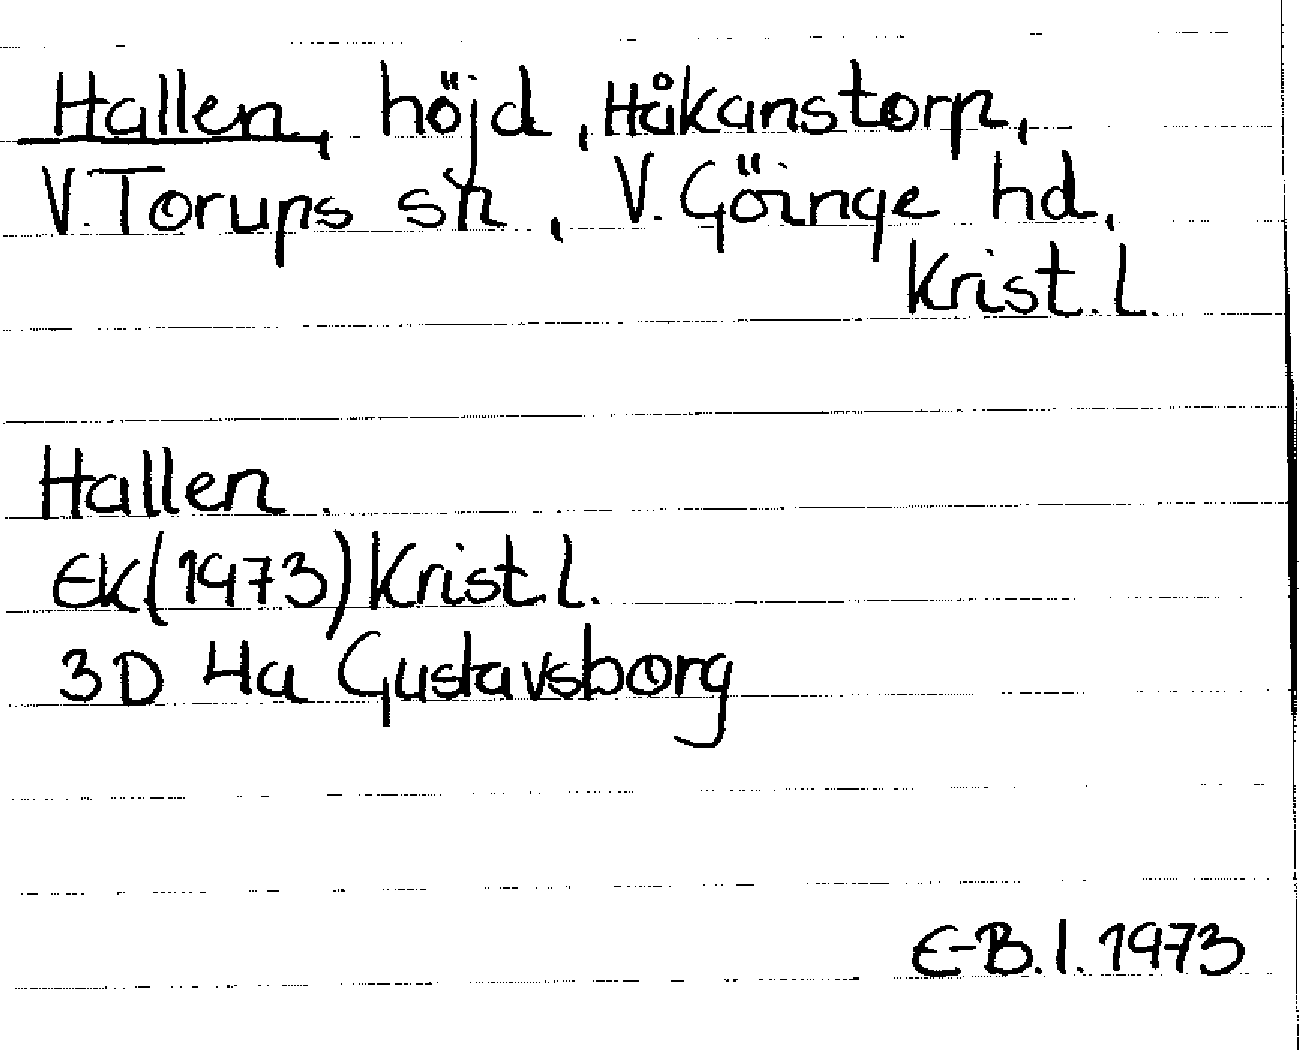 Hallen, höjd, Håkanstorp,
V. Torups sn, V. Göinge hd,
Krist. l.
Hallen
EK (1973) Krist. l.
3D 4a Gustavsborg
E-B. l. 1973